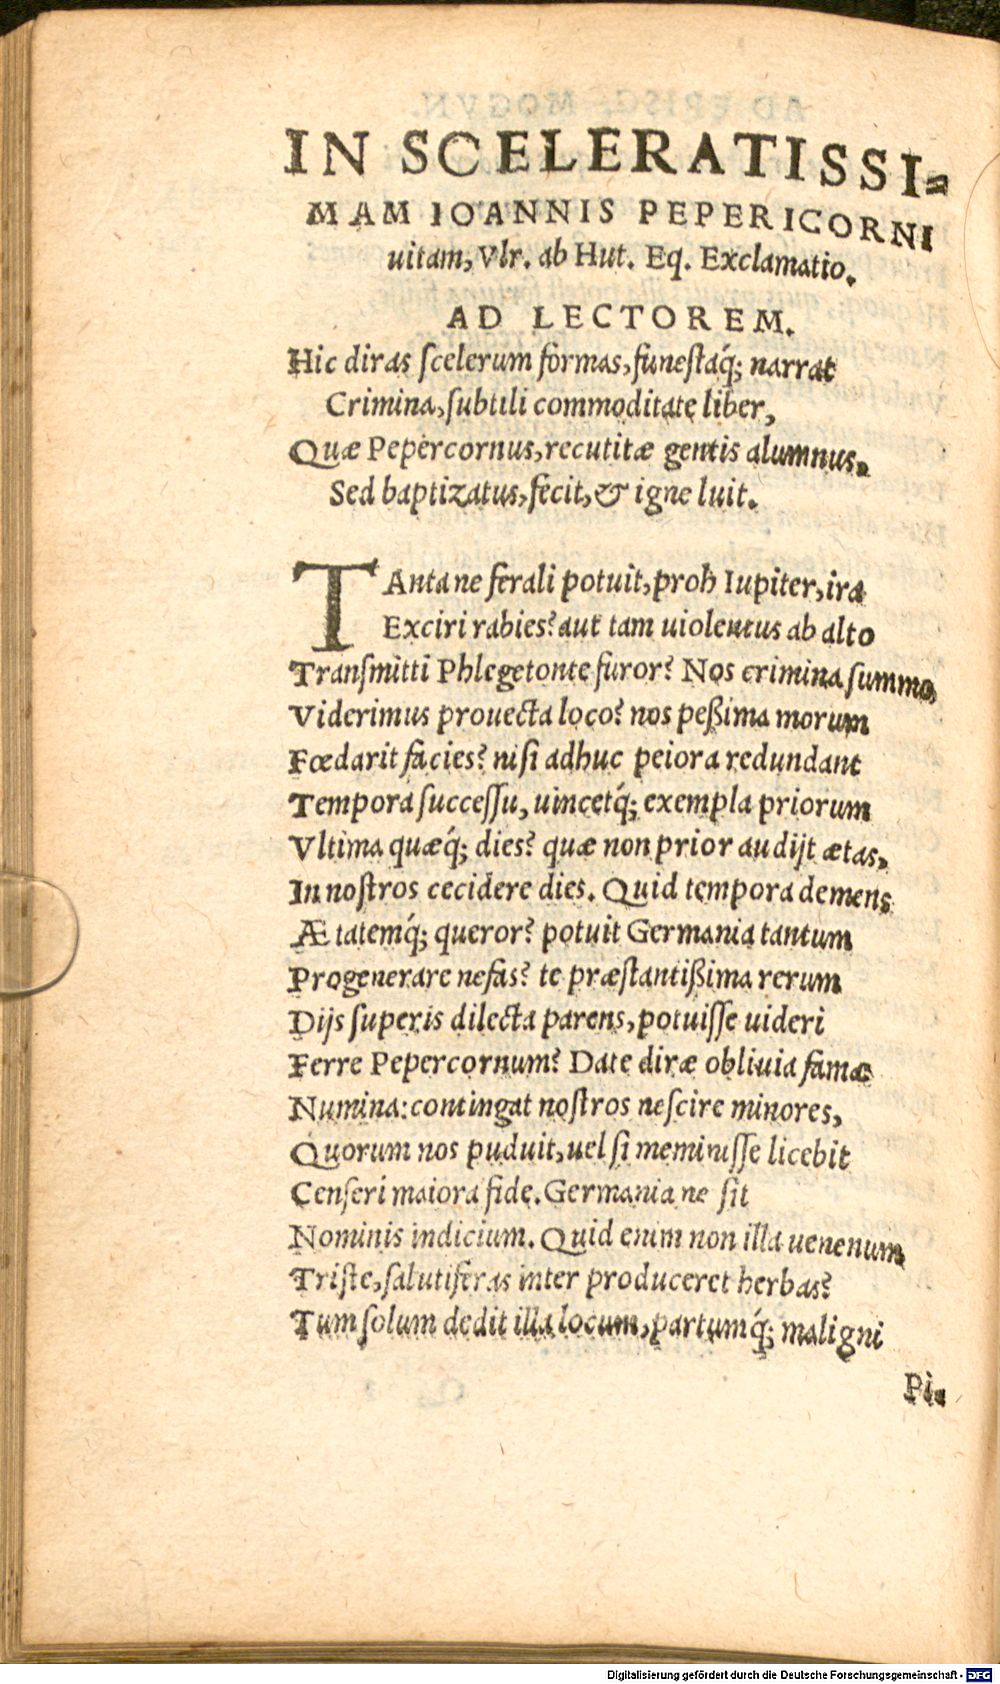 IN SCELERATISSI-
MAM IOANNIS PEPERICORNI
uitam, Vlr. ab Hut. Eq. Exclamatio.
AD LECTOREM.
Hic diras ſcelerum formas, funeſtaq́; narrat
Crimina, ſubtili commoditate liber,
Quæ Pepercornus, recutitæ gentis alumnus,
Sed baptizatus, fecit, & igne luit.
TAntane ferali potuit, proh Iupiter, ira
Exciri rabies? aut tam uiolentus ab alto
Tranſmitti Phlegetonte furor? Nos crimina ſummo
Viderimus prouecta loco? nos peßima morum
Fœdarit facies? niſi adhuc peiora redundant
Tempora ſucceſſu, uincetq́; exempla priorum
Vltima quæq́; dies? quæ non prior audijt ætas,
In noſtros cecidere dies. Quid tempora demens
Ætatemq́; queror? potuit Germania tantum
Progenerare nefas? te præſtantißima rerum
Dijs ſuperis dilecta parens, potuiſſe uideri
Ferre Pepercornum? Date diræ obliuia famæ
Numina: contingat noſtros neſcire minores,
Quorum nos puduit, uel ſi meminiſſe licebit
Cenſeri maiora fide. Germania ne ſit
Nominis indicium. Quid enim non illa uenenum
Triſte, ſalutiferas inter produceret herbas?
Tum ſolum dedit illa locum, partumq́; maligni
Pi-
Digitalisierung gefördert durch die Deutsche Forschungsgemeinschaft - DFG